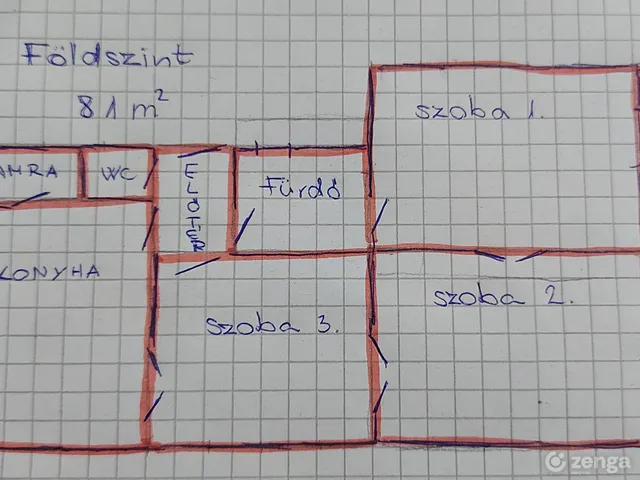 Földszint
81 m²
szoba 1.
AMRA
WC
ELŐTÉR
Fürdő
KONYHA
szoba 2.
szoba 3.
zenga